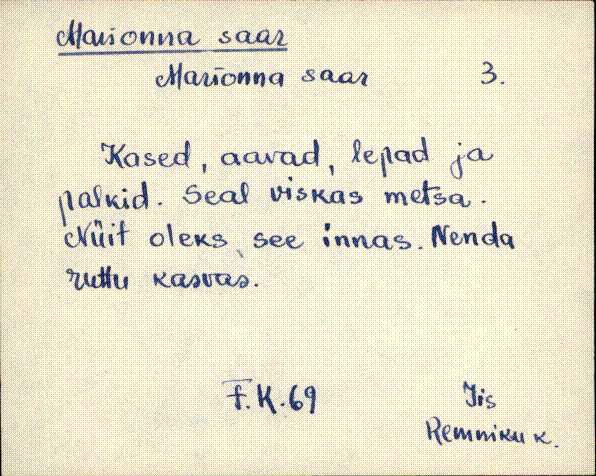 Marionna saar
Marionna saar 3.
Kased, aavad, lepad ja
palkid. Seal viskas metsa.
Nüit oleks see innas. Nenda
ruttu kasvas.
F.K.69 Iis
Remniku k.